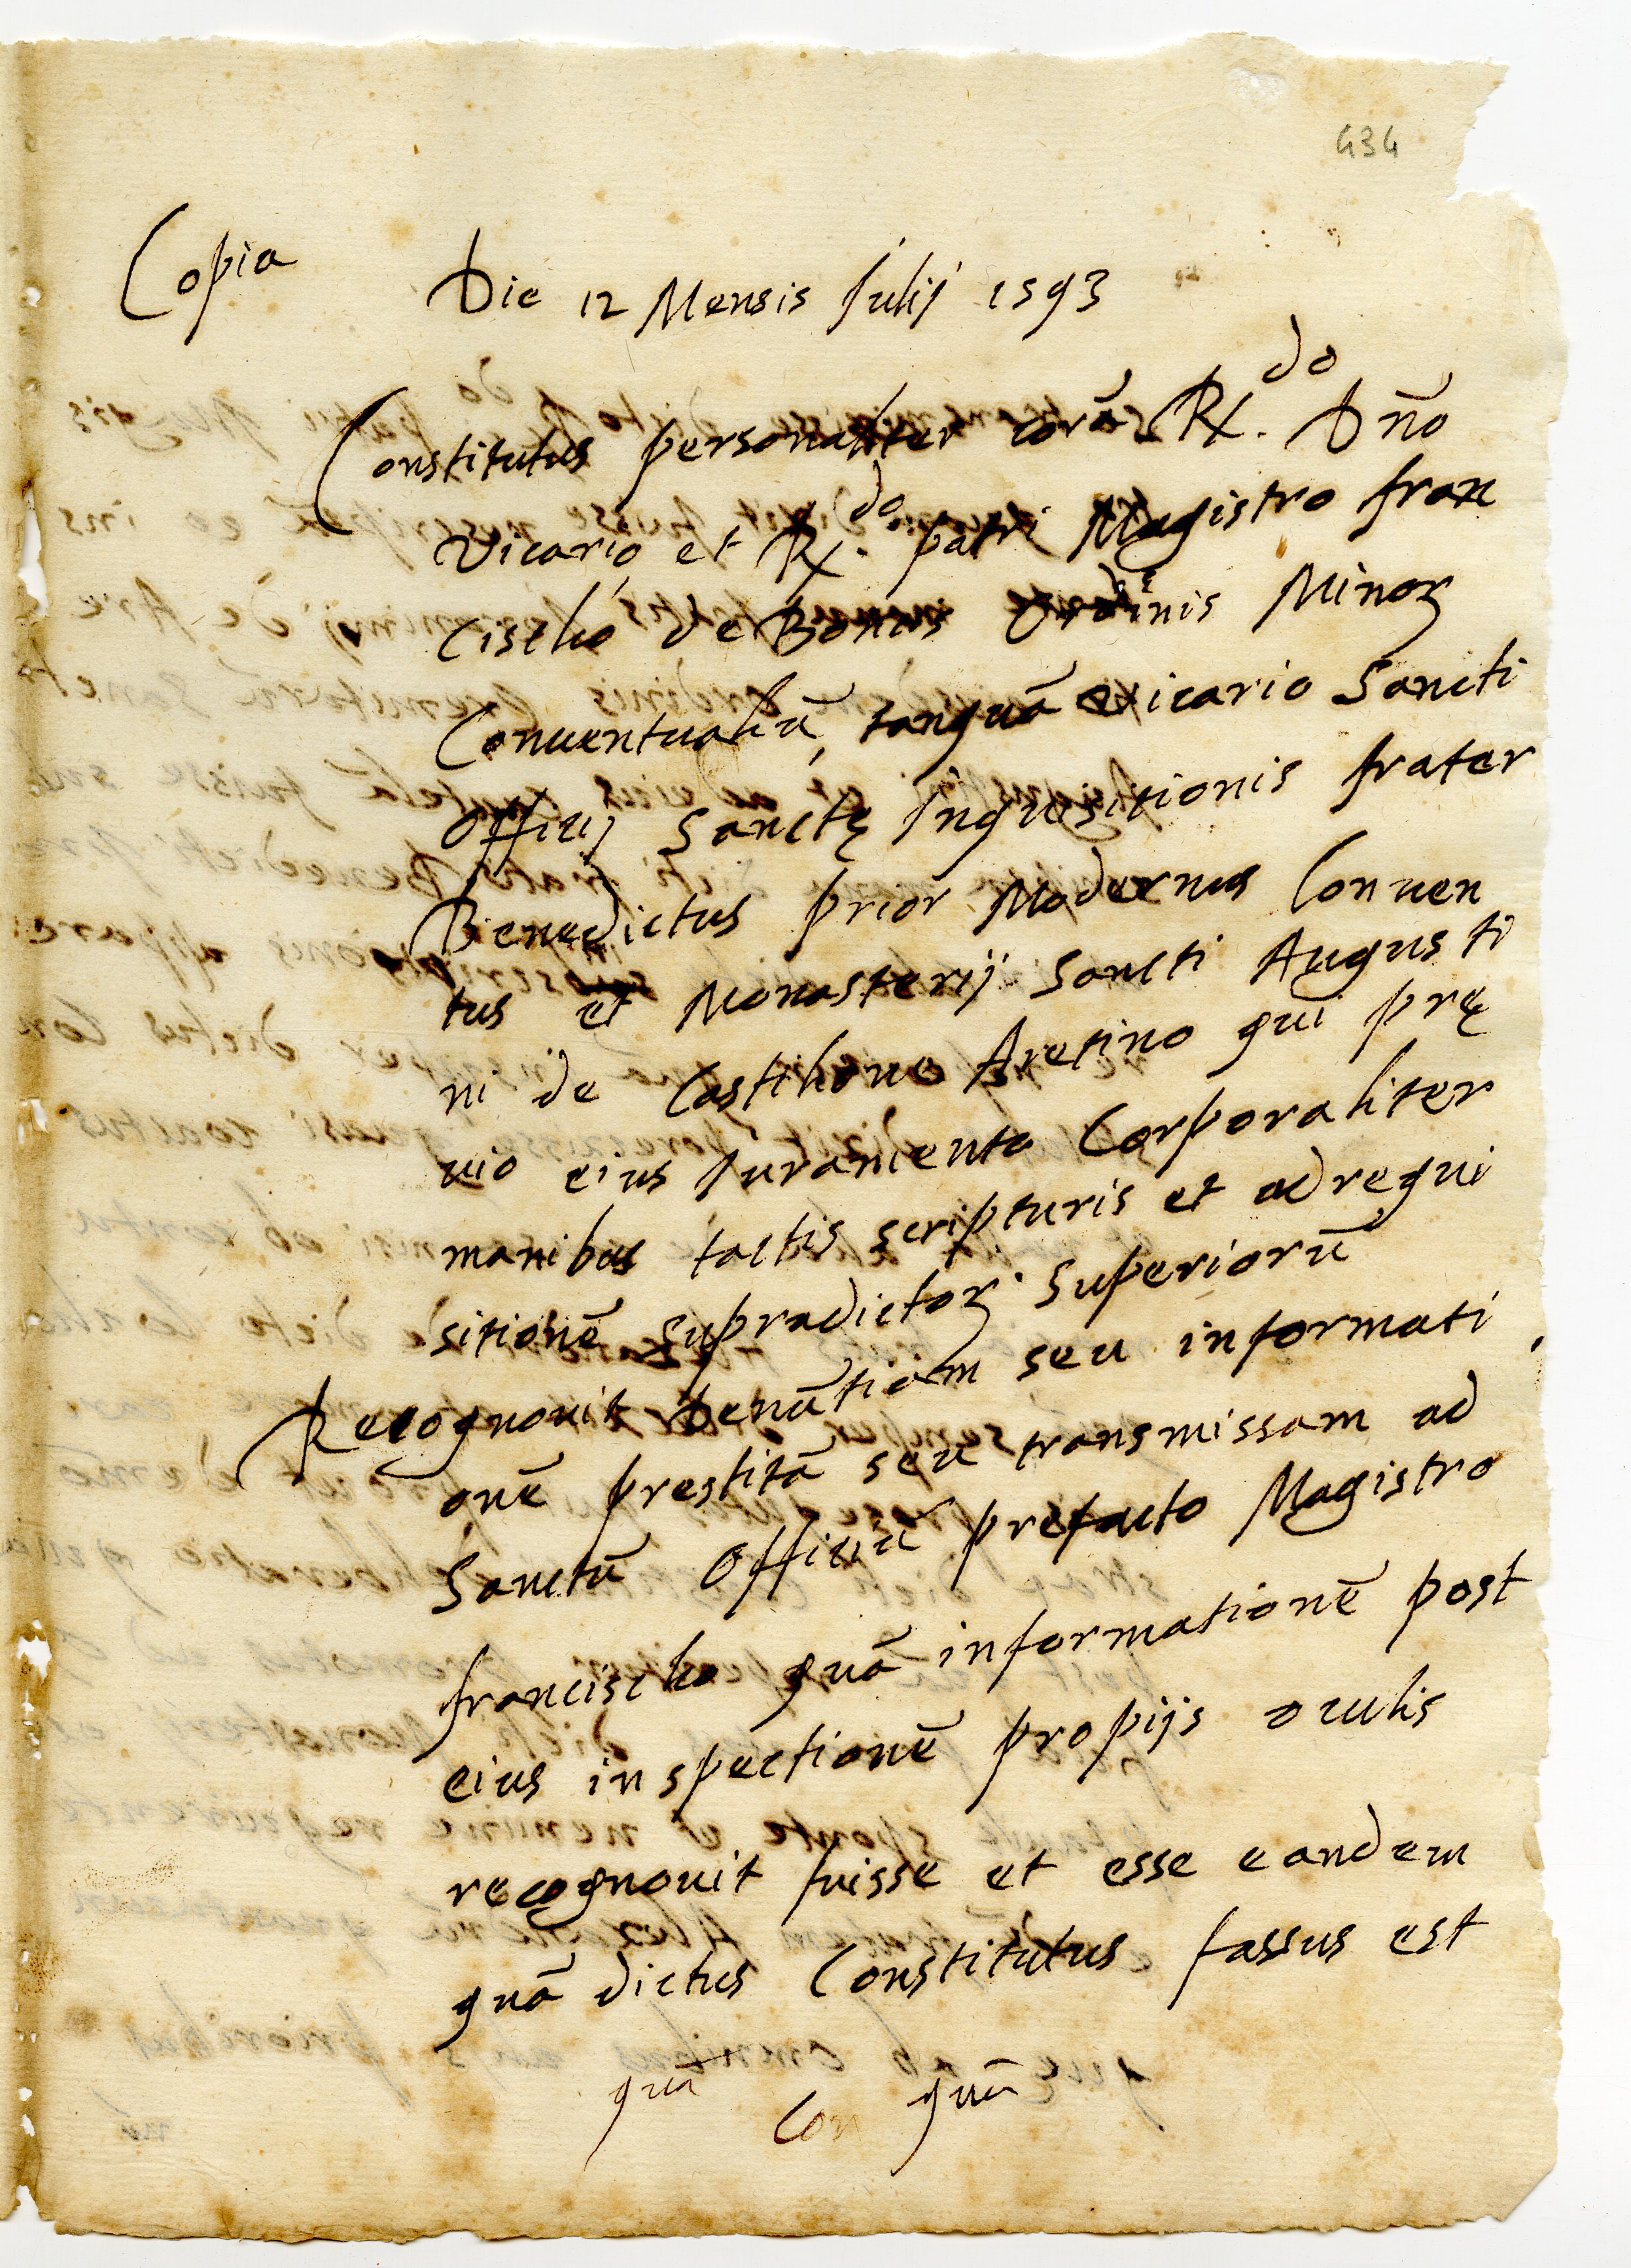 434
Copia
Die 12 Mensis Julij 1593
Constitutus personaliter corā Rx.do Dño
Vicario et Rx.do patri Magistro fran
cischo de Bonus Ordinis Minoꝝ
Conuentualiū, tanquā Vicario Sancti
Officij Sanctę Inquisitionis frater
Benedictus prior Modernus Conuen
tus et Monasterij Sancti Augusti
ni de Castilione Aretino qui prę
uio eius Juramento Corporaliter
manibus tactis scripturis et ad requi
sitionē supradictoꝝ Superiorū
Recognouit denūtiam seu informati
onē prestitā seu transmissam ad
Sanctū Officiū prefacto Magistro
francischo quā informationē post
eius inspectionē propijs oculis
recognouit fuisse et esse eandem
quā dictus Constitutus fassus est
quā Con quā